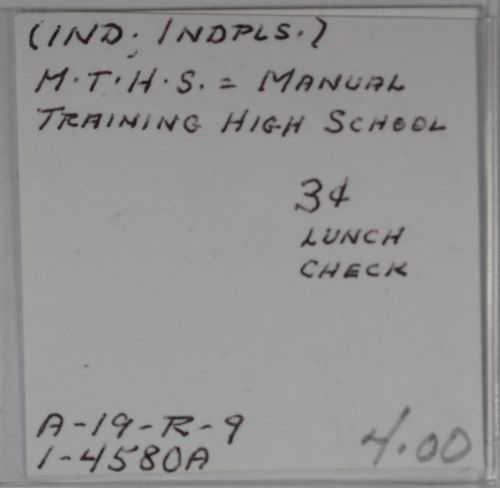 (IND. INDPLS.)
M.T.H.S. = MANUAL
TRAINING HIGH SCHOOL
3¢
LUNCH
CHECK
A-19-R-9
1-4580A
4.00